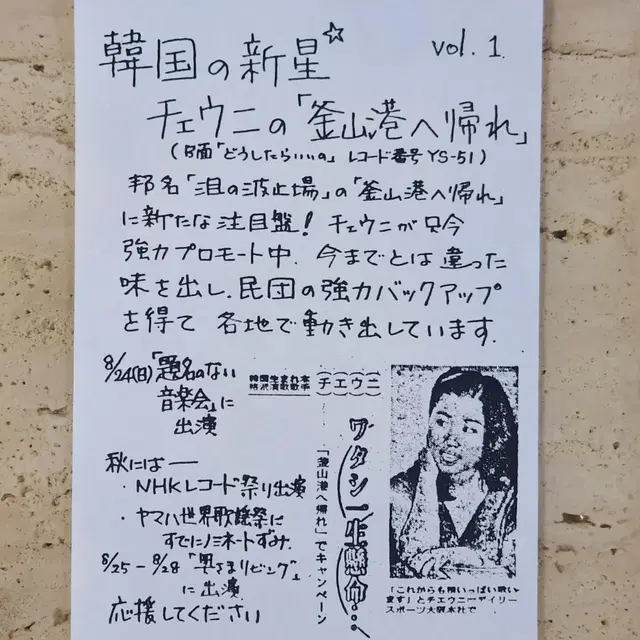 韓国の新星☆
vol.1.
チェウニの「釜山港へ帰れ」
(B面「どうしたらいいの」 レコード番号 YS-51)
邦名「泪の波止場」の「釜山港へ帰れ」
に新たな注目盤! チェウニが只今
強力プロモート中. 今までとは違った
味を出し、民団の強力バックアップ
を得て 各地で動き出しています.
8/24(日)「題名のない
音楽会」に
出演
秋には―
・NHKレコード祭り出演
・ヤマハ世界歌謡祭に
すでにノミネートずみ.
8/25-8/28「奥さまリビング」
に出演
応援してください
韓国生まれ本
格派演歌歌手
チエウニ
ワタシ一生懸命…
「釜山港へ帰れ」でキャンペーン
「これからも精いっぱい歌い
ます」とチエウニ＝デイリー
スポーツ大阪本社で